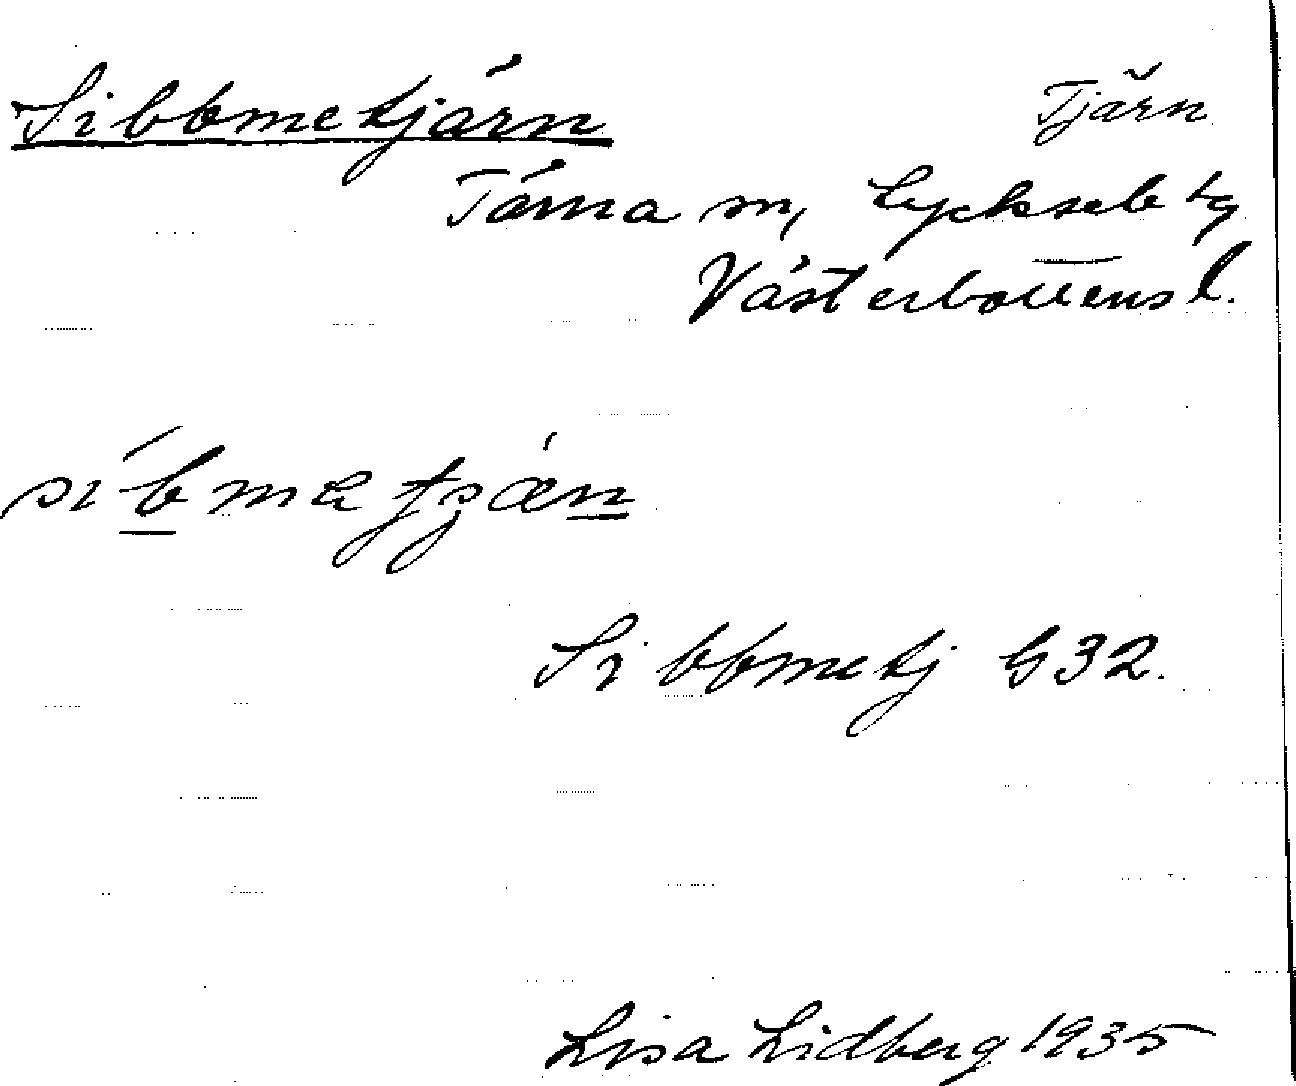 Sibbmetjärn Tjärn
Tärna sn, Lycksele tg
Västerbottens l.
Sibbmetj G32.
Lisa Lidberg 1935